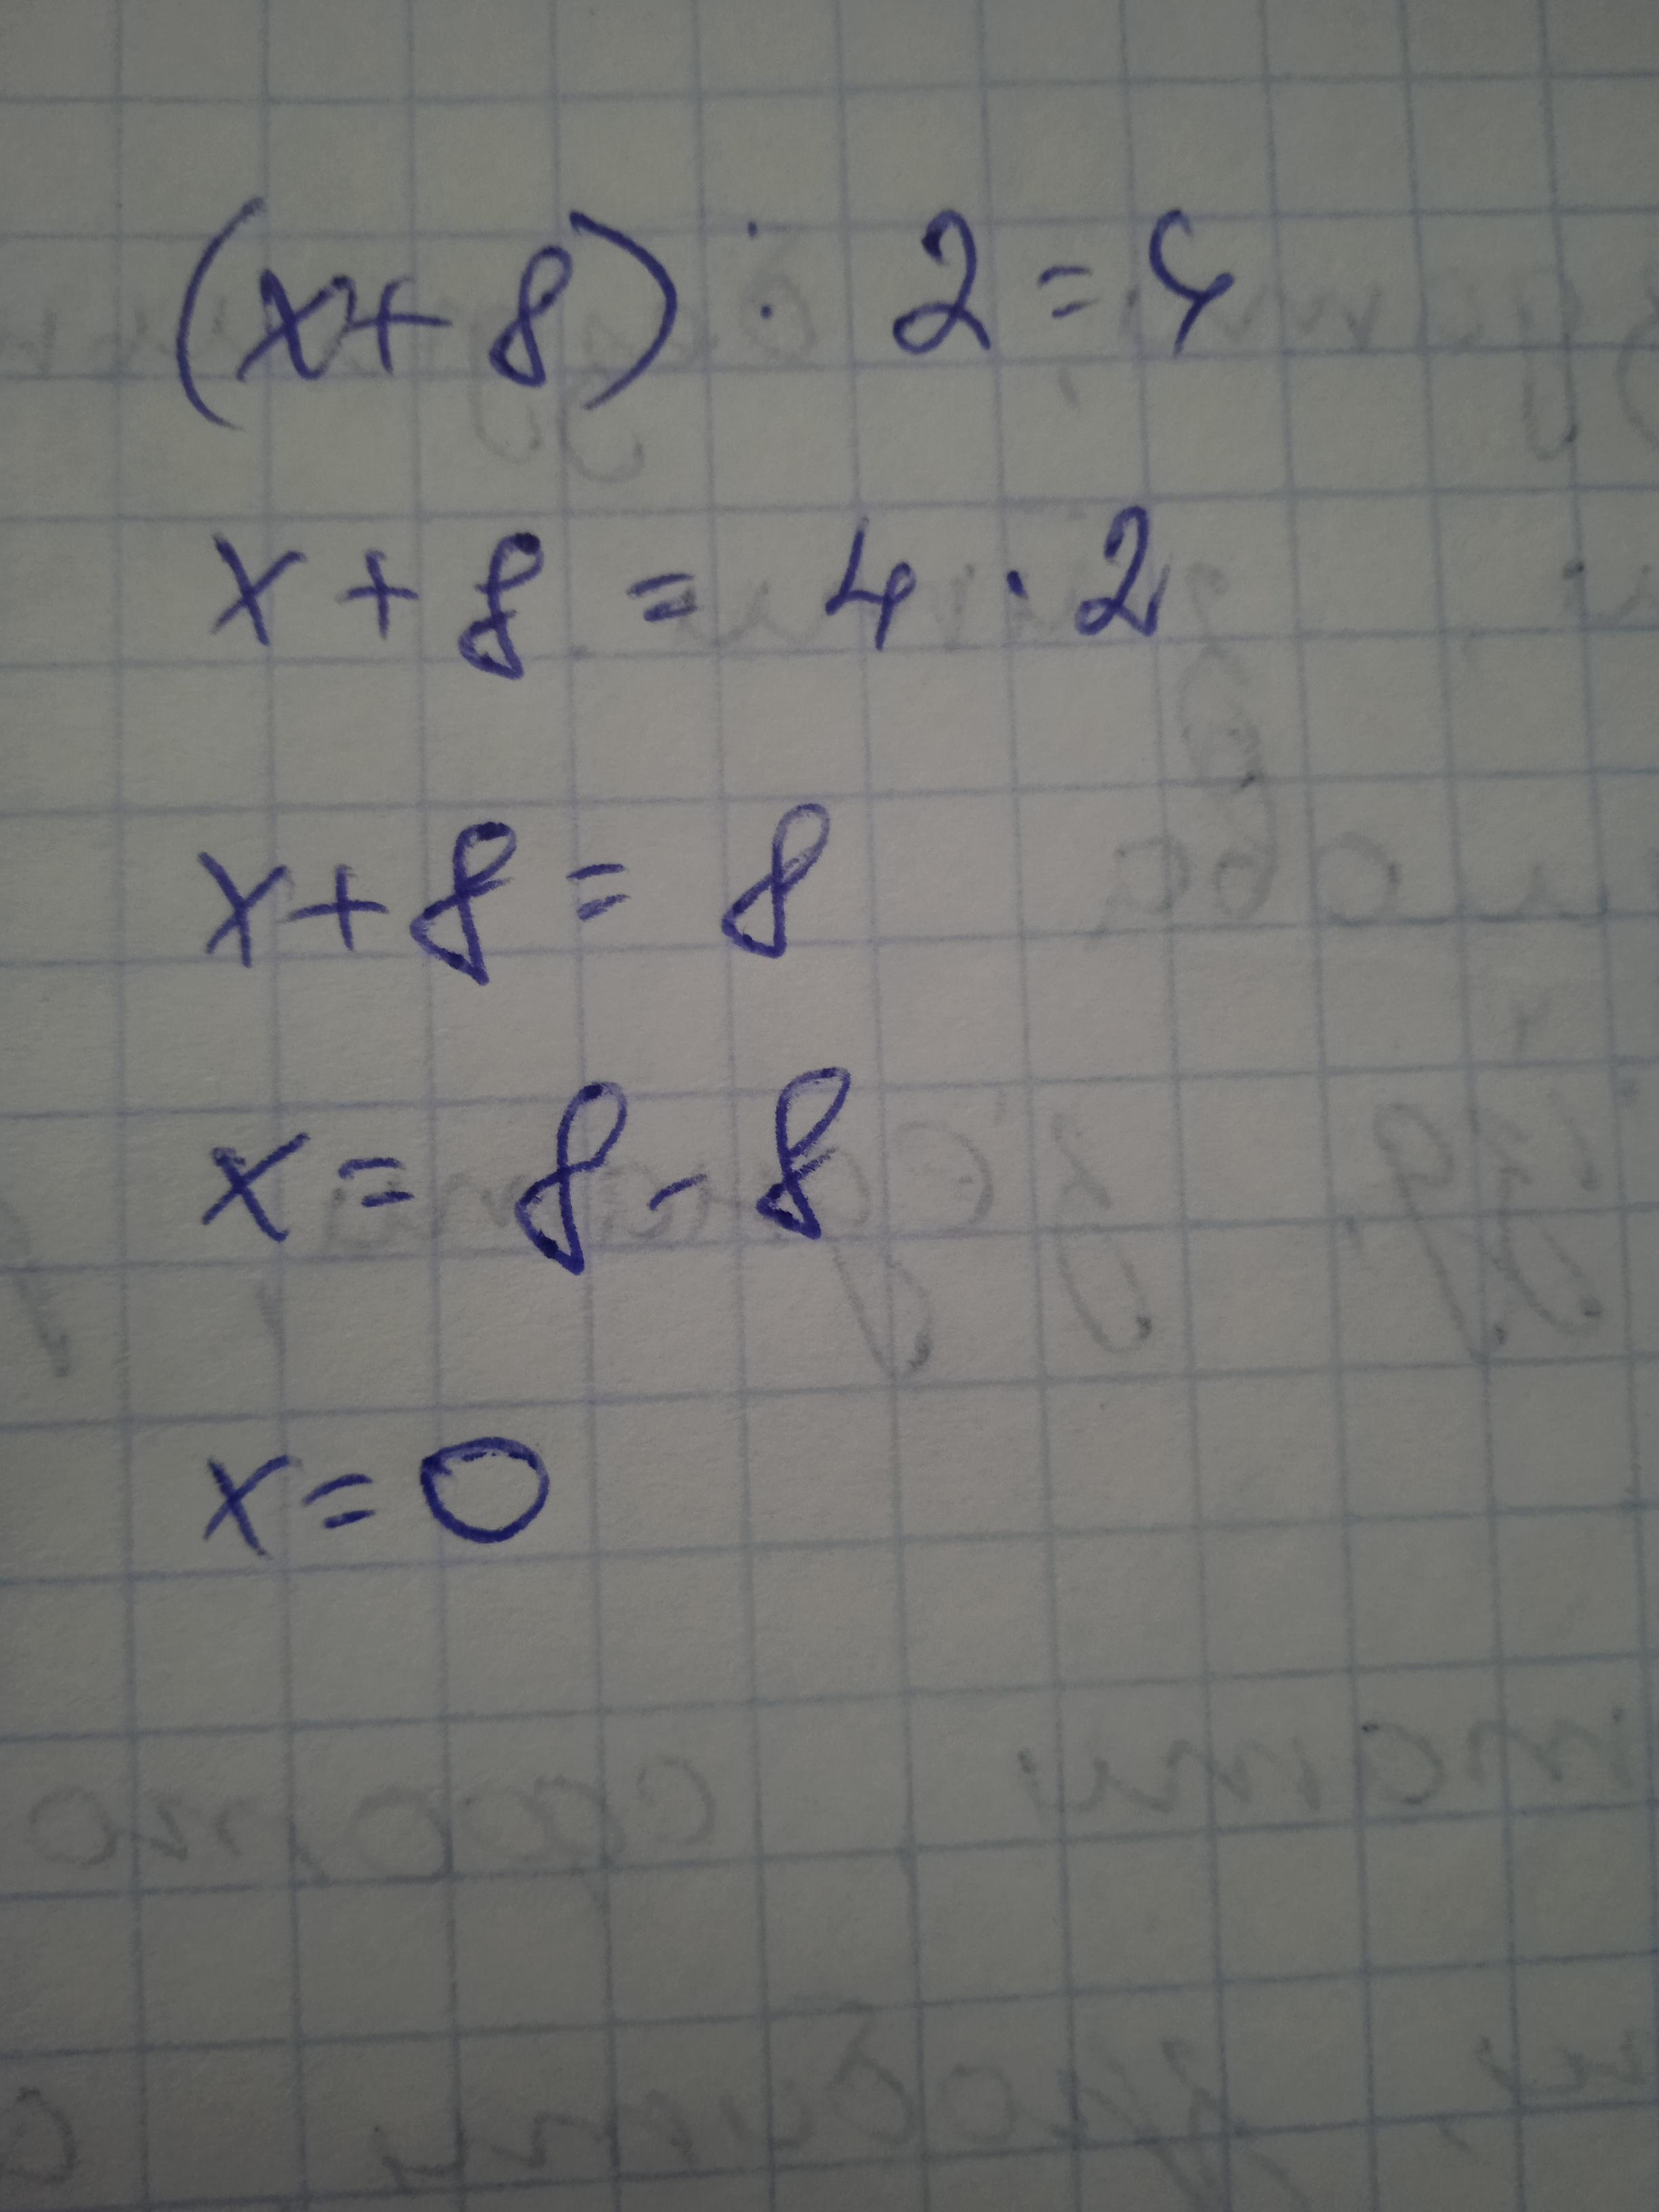 (x+8) : 2 = 4
x + 8 = 4 · 2
x + 8 = 8
x = 8 - 8
x = 0